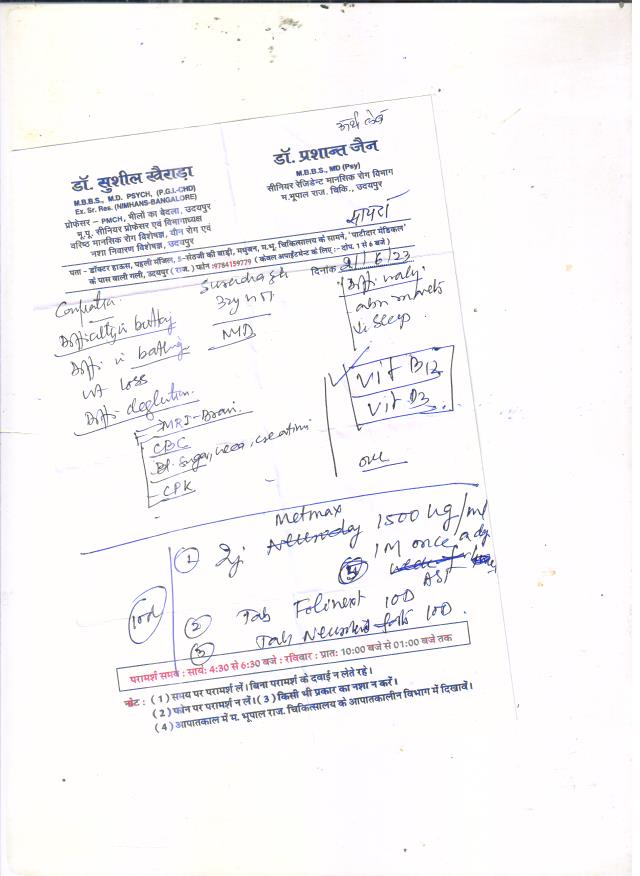 डॉ. सुशील खैराड़ा
M.B.B.S., M.D. PSYCH, (P.G.I.-CHD)
Ex. Sr. Res. (NIMHANS-BANGALORE)
प्रोफेसर - PMCH, भीलों का बेदला, उदयपुर
भू.पू. सीनियर प्रोफेसर एवं विभागाध्यक्ष
वरिष्ठ मानसिक रोग विशेषज्ञ, यौन रोग एवं
नशा निवारण विशेषज्ञ, उदयपुर
डॉ. प्रशान्त जैन
M.B.B.S., MD (Psy)
सीनियर रेजिडेन्ट मानसिक रोग विभाग
म.भूपाल राज. चिकि., उदयपुर
पता - डॉक्टर हाऊस, पहली मंजिल, 5-सेठजी की बाड़ी, मधुबन, म.भू. चिकित्सालय के सामने, 'पाटीदार मेडिकल'
के पास वाली गली, उदयपुर ( राज. ) फोन :9784159779 ( केवल अपाईन्टमेंट के लिए :- दोप. 1 से 6 बजे )
दिनांक 21/6/23
32y
MD
Difficulty in
Diffi in bathing
wt loss
Diffi deglution.
Sleep
Vit B12
Vit D3
MRI-Brain.
CBC
Bl. Sugar, urea, creatini
CPK
one
Metmax
1 Inj 1500 ug/ml
IM once a day
10d
2 Tab Folinext 10D
3 Tab 10D.
परामर्श समय : सायं: 4:30 से 6:30 बजे : रविवार : प्रात: 10:00 बजे से 01:00 बजे तक
नोट : ( 1 ) समय पर परामर्श लें। बिना परामर्श के दवाई न लेते रहे।
( 2 ) फोन पर परामर्श न लें। ( 3 ) किसी भी प्रकार का नशा न करें।
( 4 ) आपातकाल में म. भूपाल राज. चिकित्सालय के आपातकालीन विभाग में दिखावें।